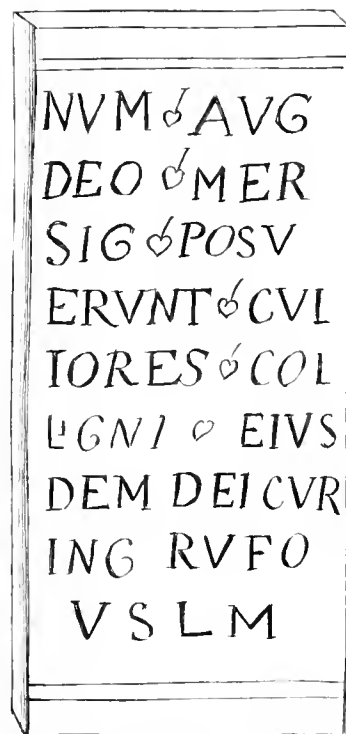 NVM AVG
DEO MER
SIG POSV
ERVNT CVL
TORES COL
LIGNI EIVS
DEM DEI CVR
ING RVFO
VSLM